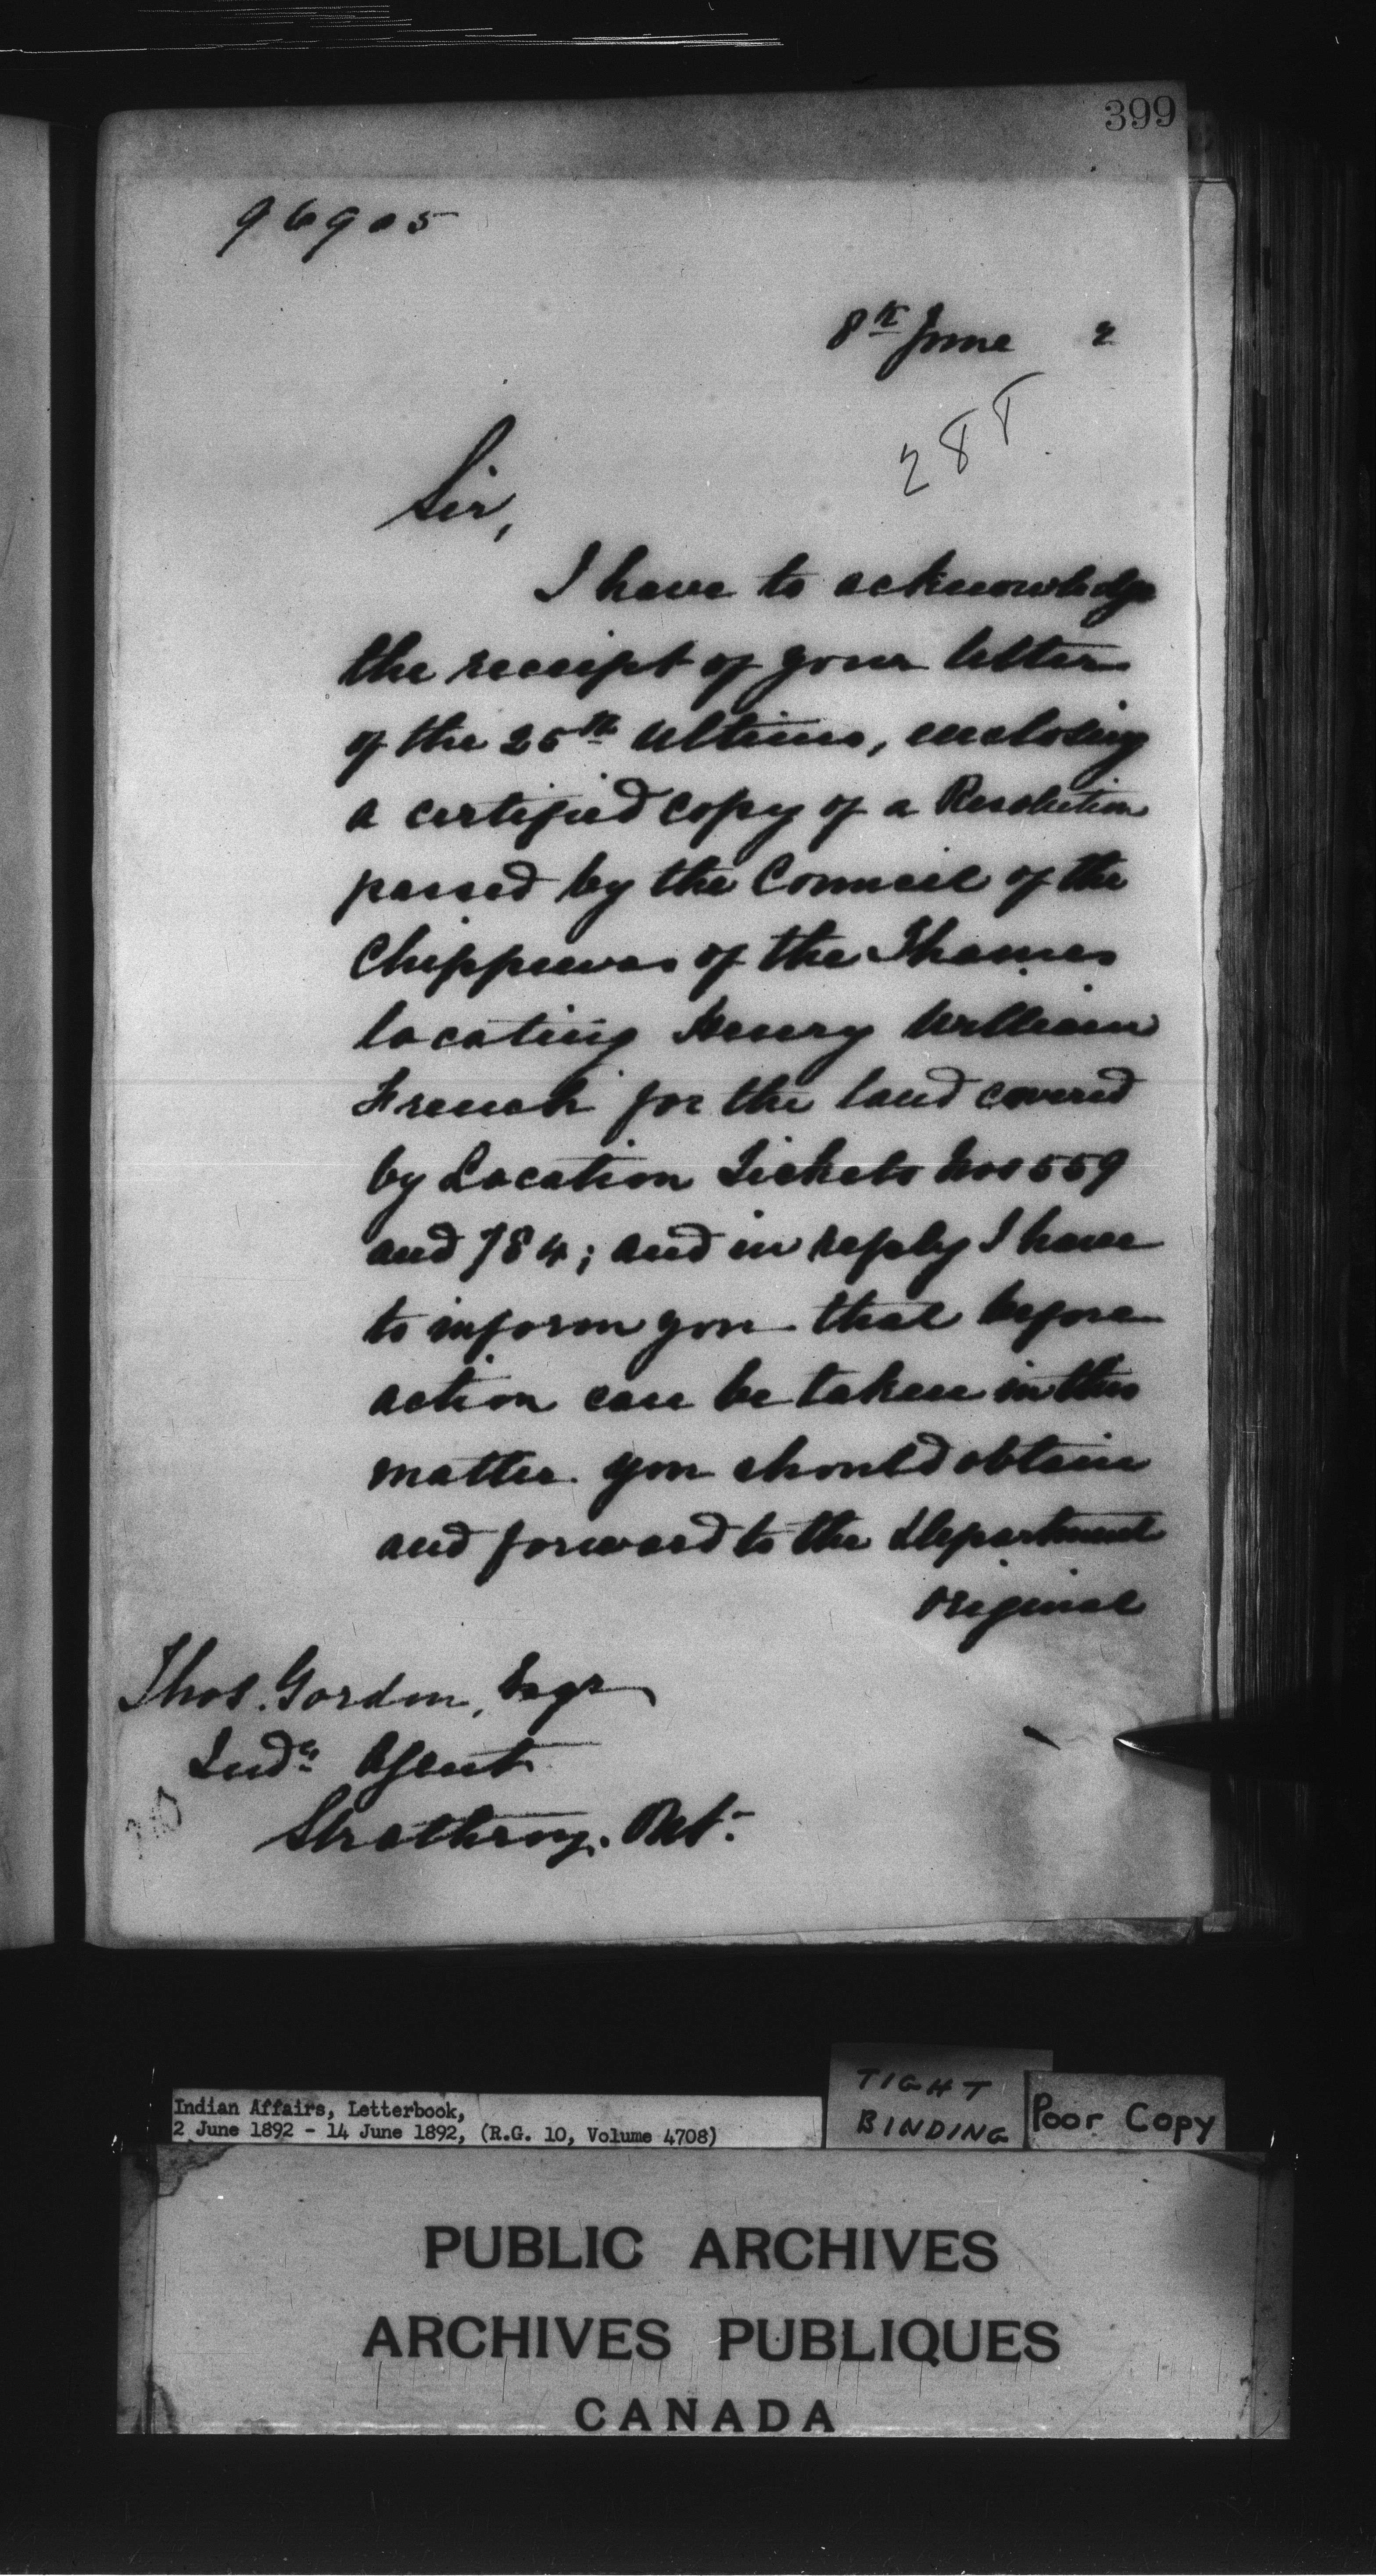 399
96905
8th June 2
288
Sir,
I have to acknowledge
the receipt of your letter
of the 25th Ultimo, enclosing
a certified copy of a Resolution
passed by the Council of the
Chippewas of the Thames
locating Henry William
French for the land covered
by Location Tickets Nos 559
and 784; and in reply I have
to inform you that before
action can be taken in this
matter. you should obtain
and forward to the Department
original
Thos. Gordon, Esqr
Indn Agent
Strathroy. Ont.
Indian Affairs, Letterbook,
2 June 1892 - 14 June 1892, (R.G. 10, Volume 4708)
TIGHT
BINDING
Poor Copy
PUBLIC ARCHIVES
ARCHIVES PUBLIQUES
CANADA